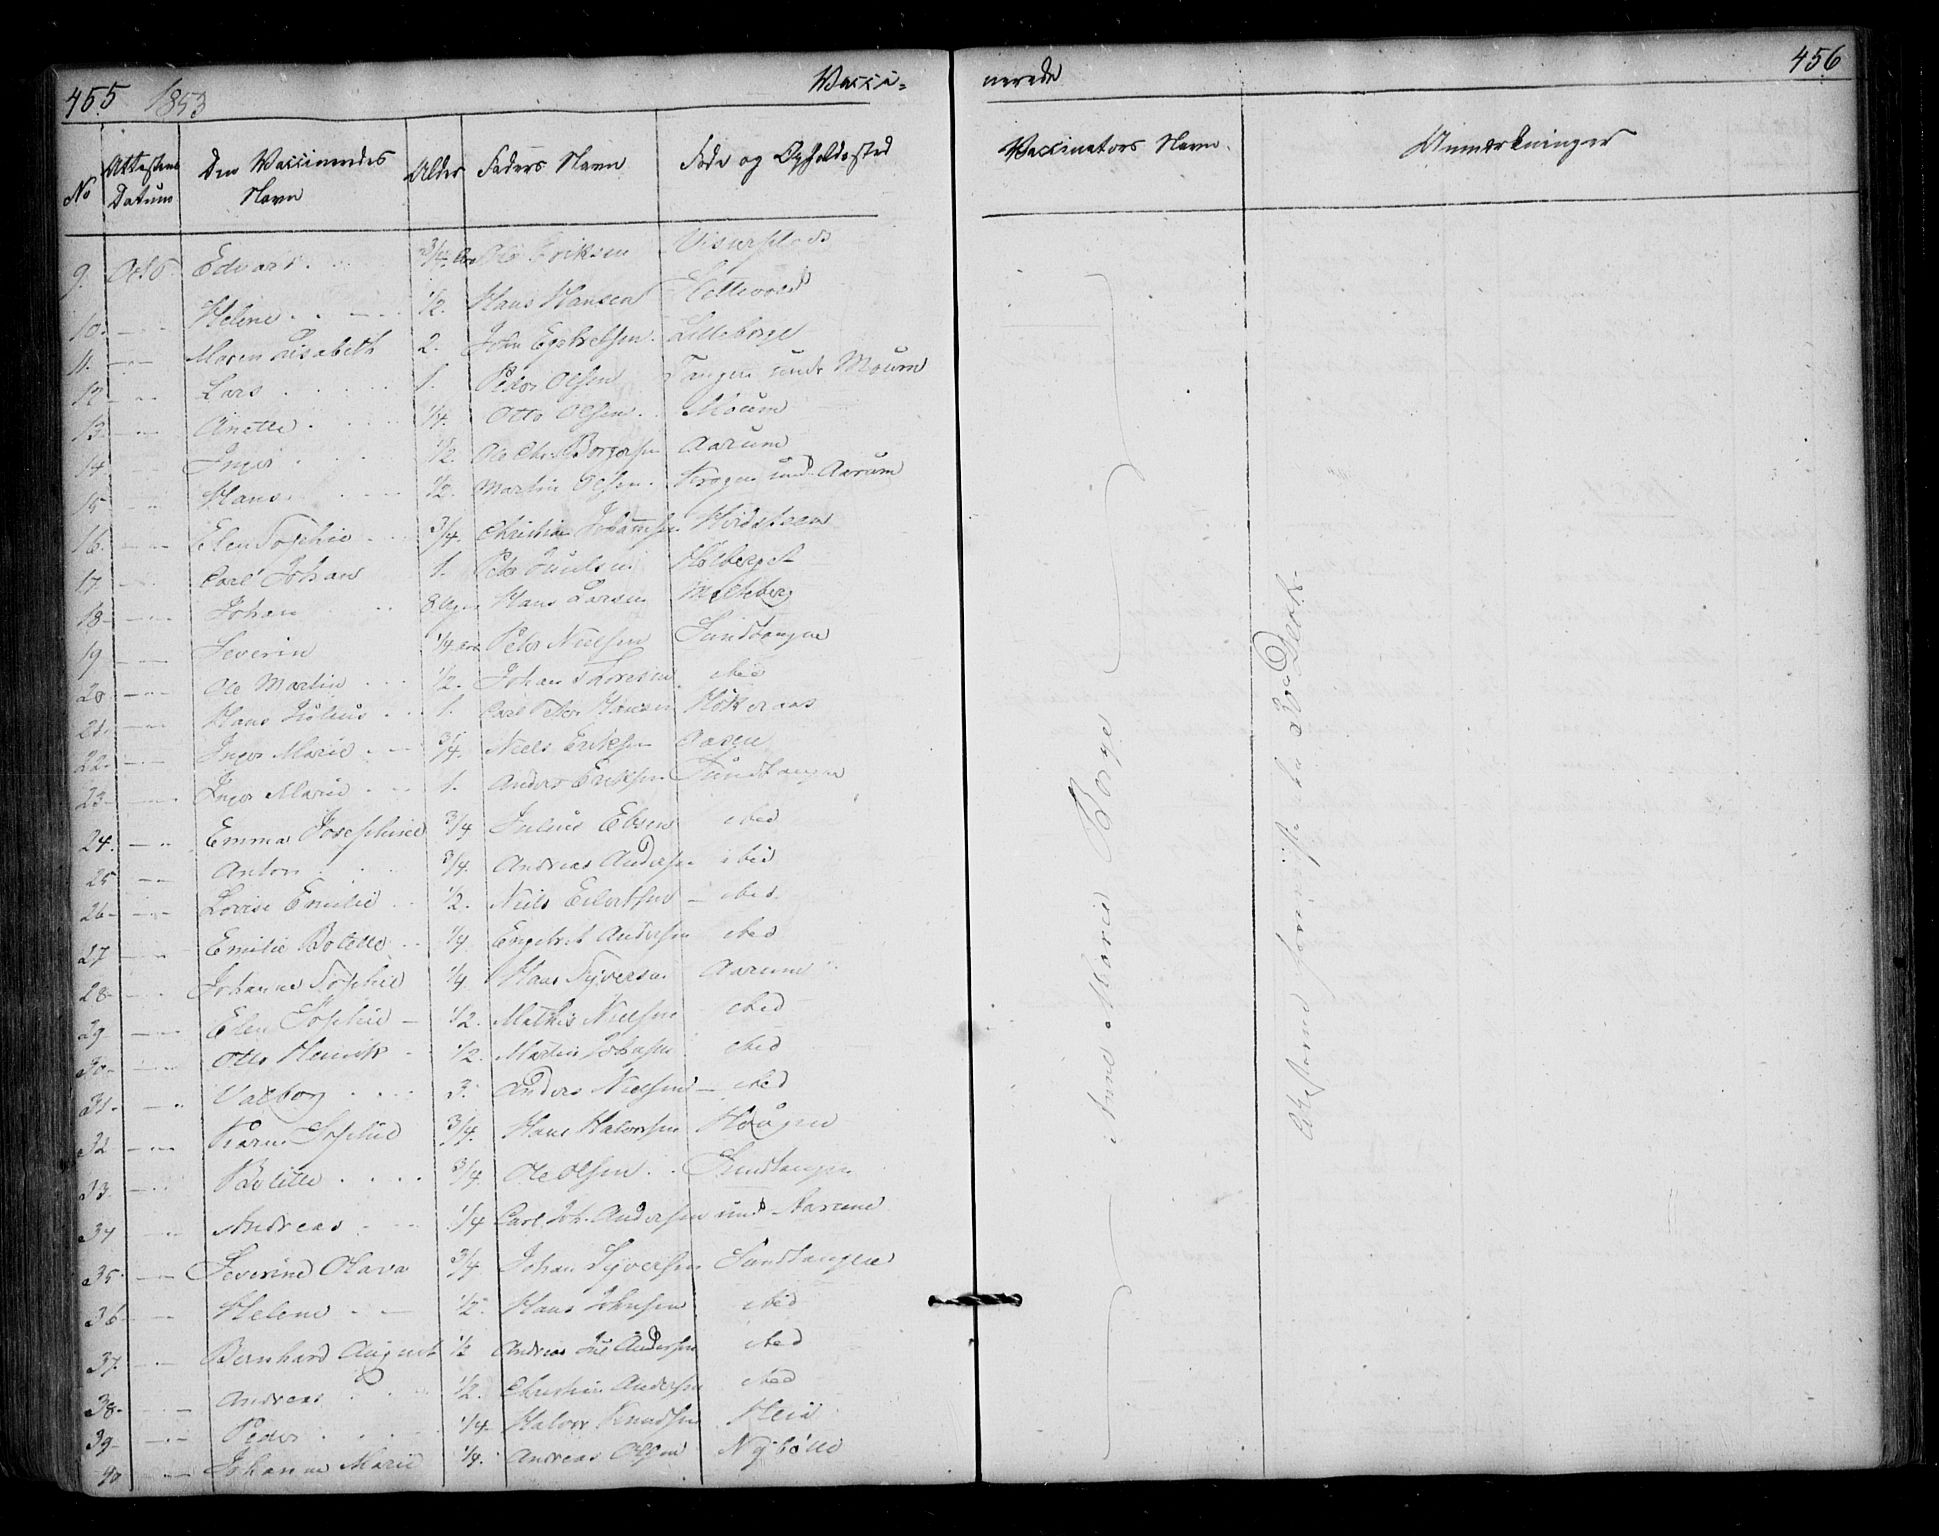 455 1853 Vacci-
nerede 456
No Attestens Datum Den Vaccineredes Navn Alder Faders Navn Føde og Opholdssted Vaccinators Navn. Anmærkninger
9. Edvard 3/4 Ole Eriksen
10. Helene 1/2. Hans Hansen
11. Maren Lisabeth 2. John Lilleborge
12 Lars 1. Peder Olsen Tangen und. Moum
13 Anette 1/4. Otto Olsen. Moum
14 Inger 1/2. Ole Chr. Borgersen Aarum
15 Hans 1/2. Martin Olsen. Krogen und. Aarum
16. Elen Sophie 3/4. Christian Johannesen Hvidsteen
17 Carl Johan 1. Peder Juulsen Holberget
18 Johan Hans Larsen
19 Severin 1/4 Peter Nielsen Sundtangen
20 Ole Martin 1/2. Johan Thoresen ibid
21. Hans Julius 1. Carl Peter Hansen
22. Inger Marie 3/4. Niels Eriksen Aasen
23. Inger Marie 1. Anders Eriksen Sundtangen
24. Emma Josephine 3/4 Julius Ebsen ibid
25 Anton 3/4. Andreas Andersen ibid
26 Lovise Emilie 1/2. Niels Eilertsen ibid.
27 Emilie Bolette 1/4 Engebret Andersen ibid
28 Johanne Sophie 1/4 Hans Syversen Aarum
29 Elen Sophie 1/2. Mathis Nielsen ibid
30 Otto Henrik 1/2. Martin Johnsen ibid
31. Valborg 3. Anders Nielsen ibid
32 Karen Sophie 3/4. Hans Halvorsen Haugen
33. Bolette 3/4 Ole Olsen Sundtangen
34 Andreas 1/4 Carl Joh. Andersen und. Aarum
35. Severine Olava 3/4. Johan Syversen Sundtangen
36 Helene 1/2. Hans Johnsen ibid
37. Bernhard August 1/2 Andreas Jul. Andersen ibid
38. Andreas 1/2. Christian Andersen ibid
39 Peder 1/4 Halvor Knudsen
40 Johanne Marie 1/4. Andreas Olsen
Anne Marie Borge
Attesterne